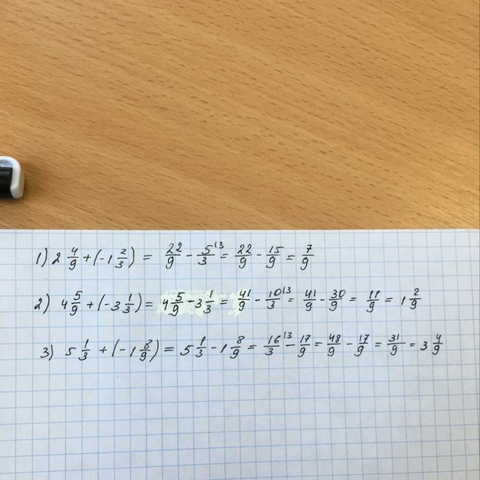 1) 2 4/9 + (-1 2/3) = 22/9 - 5/3 ^(3 = 22/9 - 15/9 = 7/9
2) 4 5/9 + (-3 1/3) = 4 5/9 - 3 1/3 = 41/9 - 10/3 ^(3 = 41/9 - 30/9 = 11/9 = 1 2/9
3) 5 1/3 + (-1 8/9) = 5 1/3 - 1 8/9 = 16/3 ^(3 - 17/9 = 48/9 - 17/9 = 31/9 = 3 4/9